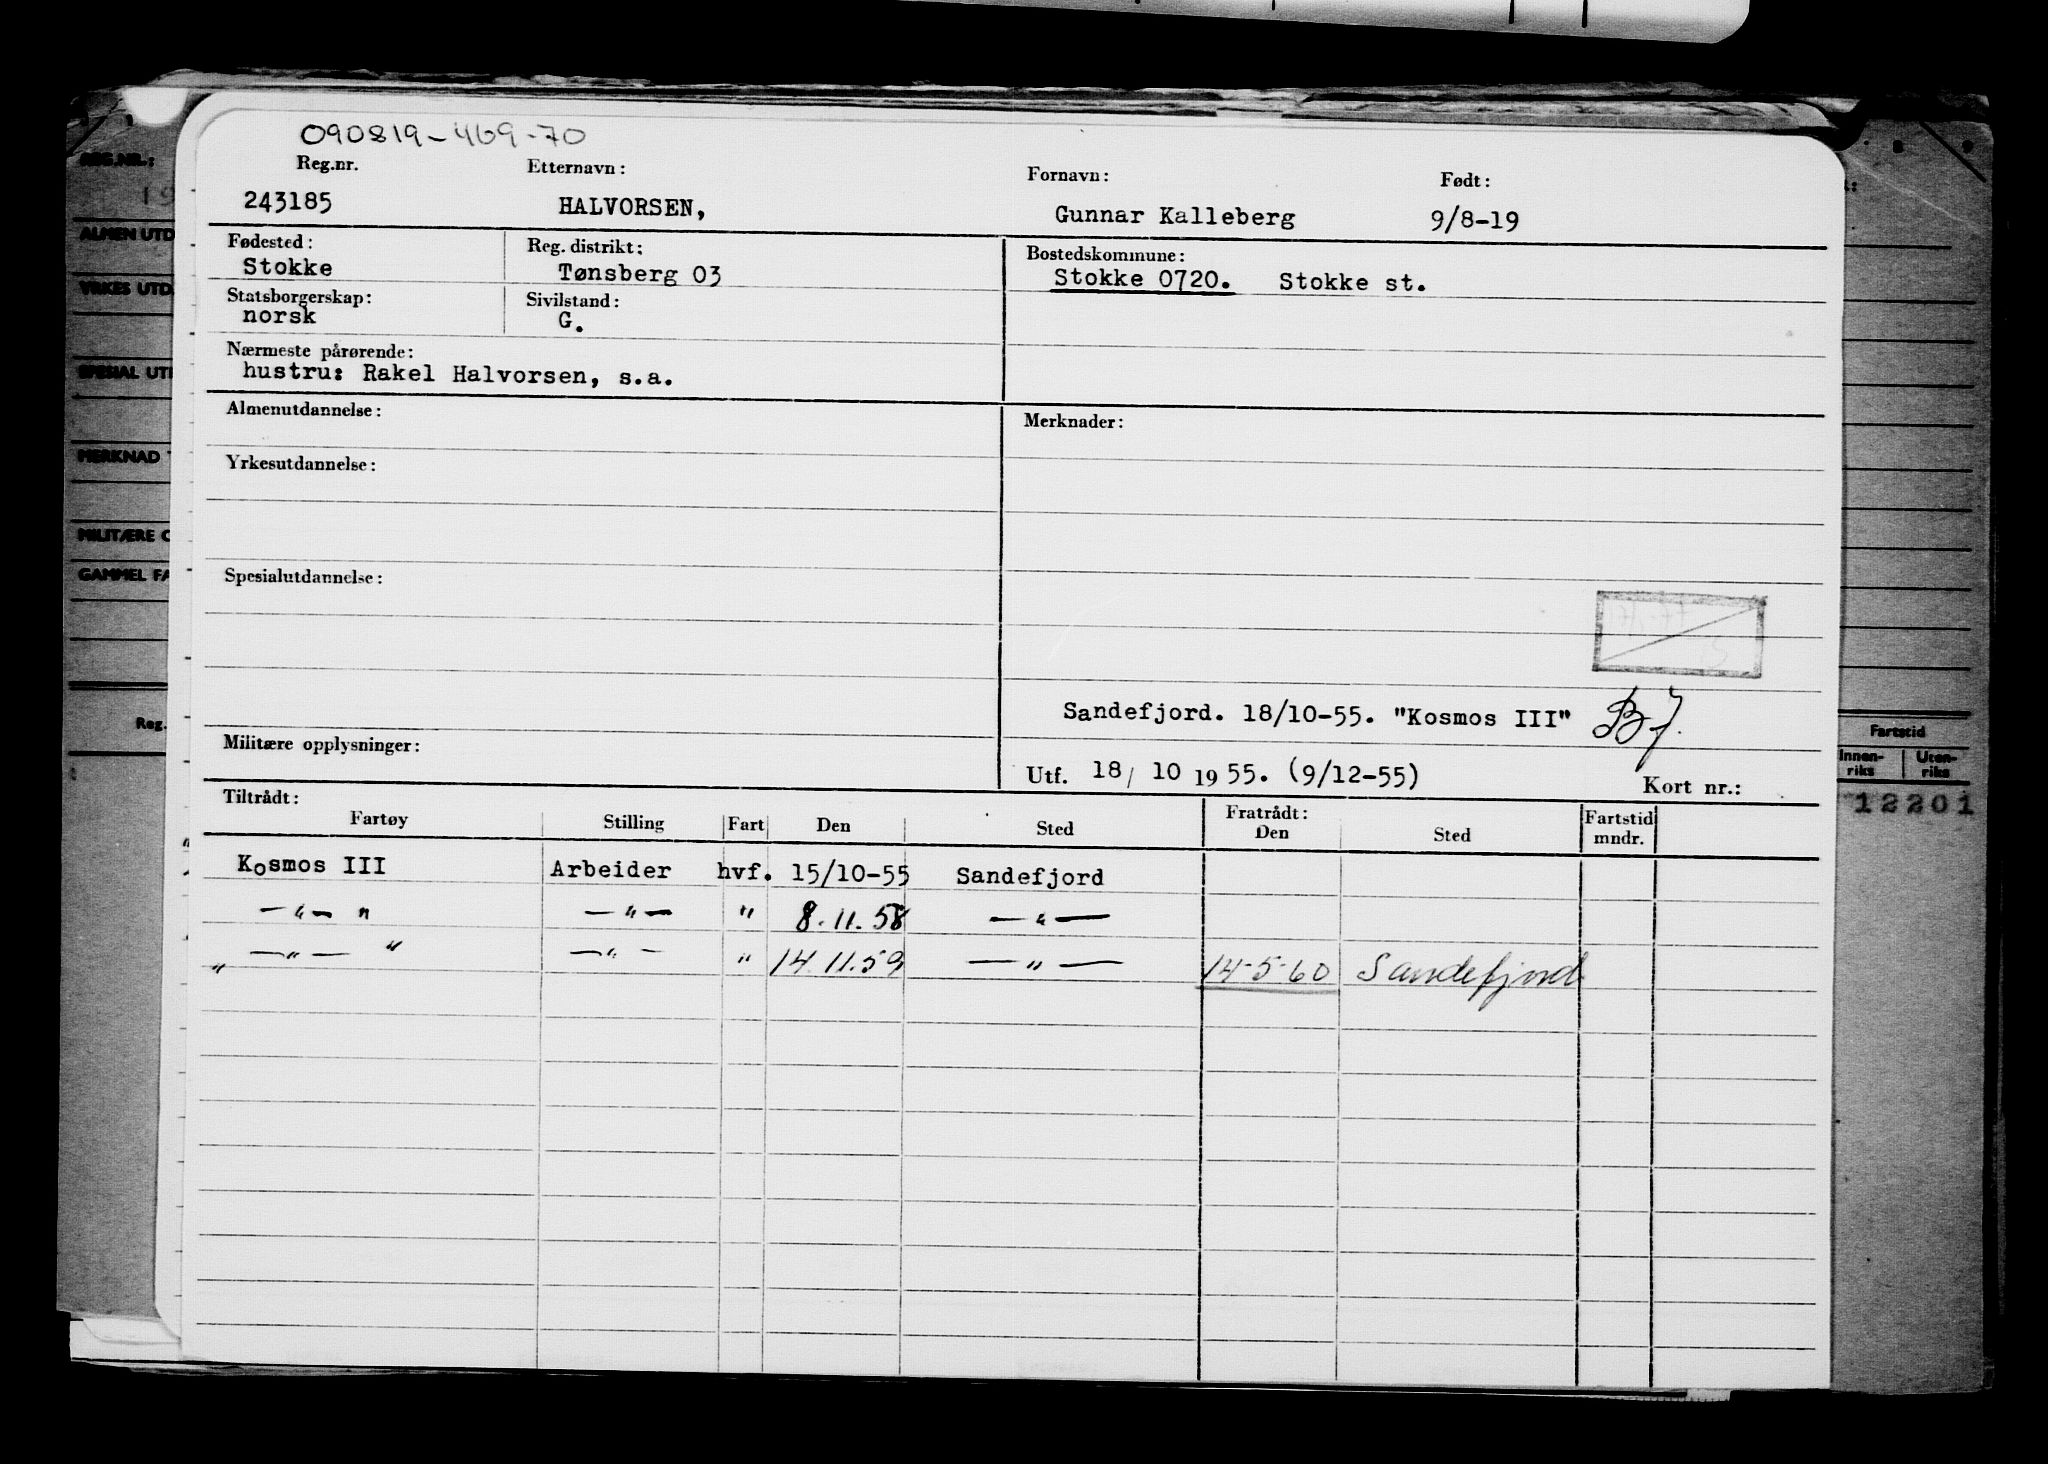 090819-469-70
Reg.nr. Etternavn: Fornavn: Født:
243185 HALVORSEN, Gunnar Kalleberg 9/8-19
Fødested: Reg. distrikt: Bostedskommune:
Stokke Tønsberg 03 Stokke 0720. Stokke st.
Statsborgerskap: Sivilstand:
norsk G.
Nærmeste pårørende:
hustru: Rakel Halvorsen, s.a.
Almenutdannelse: Merknader:
Yrkesutdannelse:
Spesialutdannelse:
Sandefjord. 18/10-55. "Kosmos III"
Militære opplysninger:
Utf. 18/ 10 1955. (9/12-55) Kort nr.:
Tiltrådt: Fratrådt:
Fartøy Stilling Fart Den Sted Den Sted Fartstid mndr.
Kosmos III Arbeider hvf. 15/10-55 Sandefjord
—"— " —"— " 8.11.58 —"—
—"— " —"— " 14.11.59 —"— 14-5-60 Sandefjord
REG.NR.:
ALMEN UTD
YRKES UTD.
SPESIAL UTD
MERKNAD
MILITÆRE O
GAMMEL FA
Reg.
Fartstid
Innen-riks Uten-riks
12201